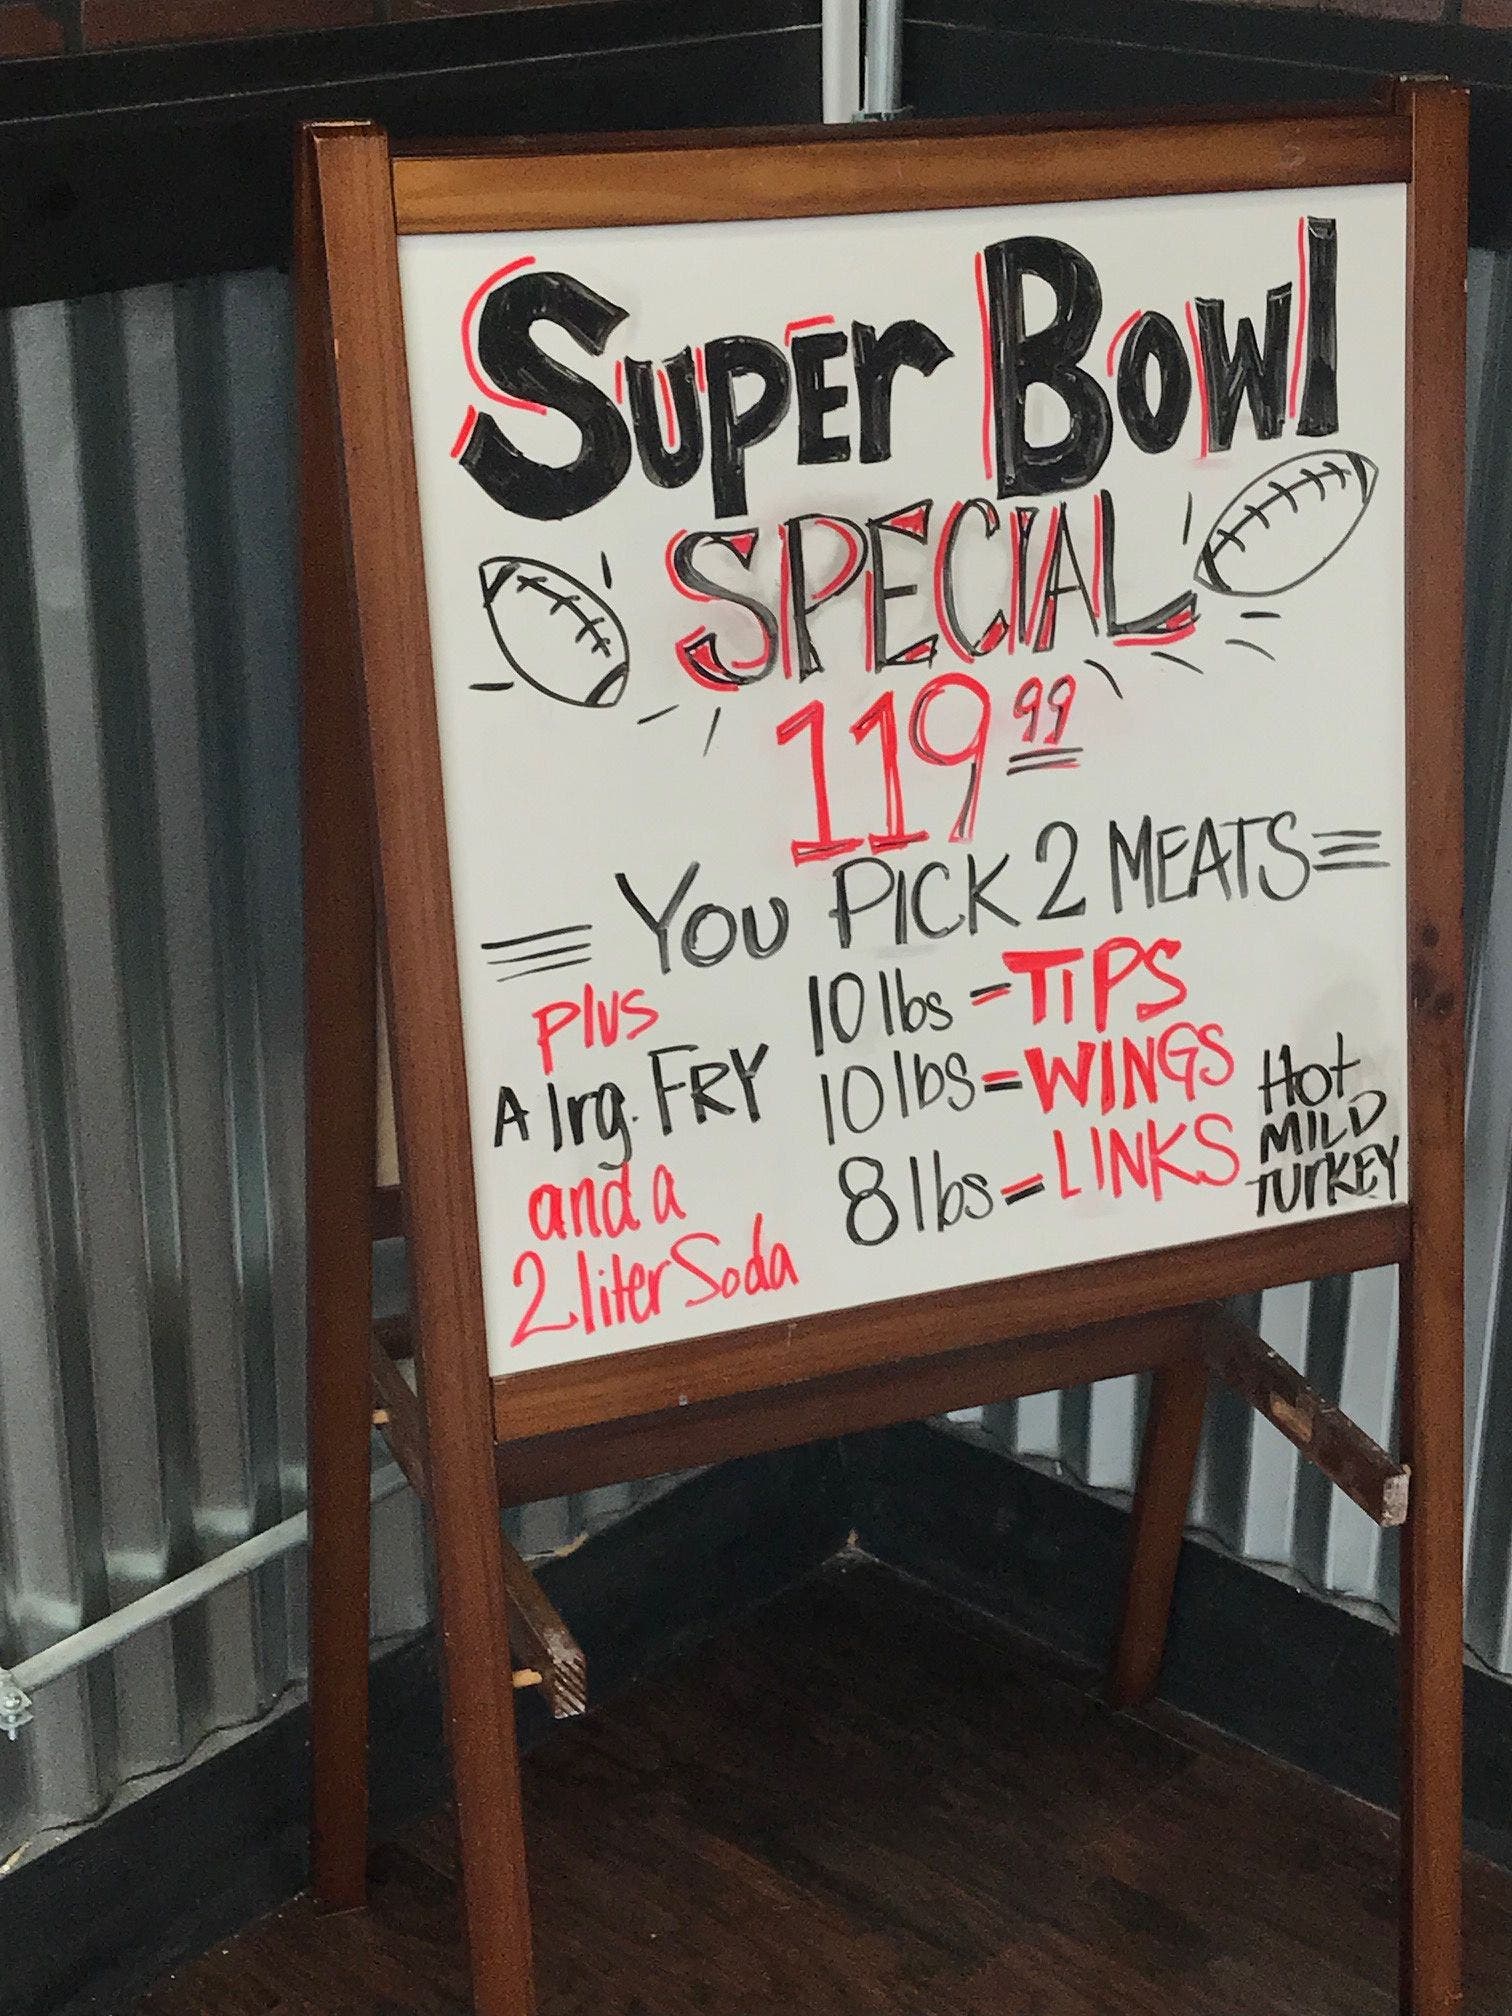 Super Bowl
SPECIAL
119 99
YOU PICK 2 MEATS
plus
A lrg. FRY
and a
2 liter Soda
10 lbs = TIPS
10 lbs = WINGS
8 lbs = LINKS
Hot
MILD
TURKEY